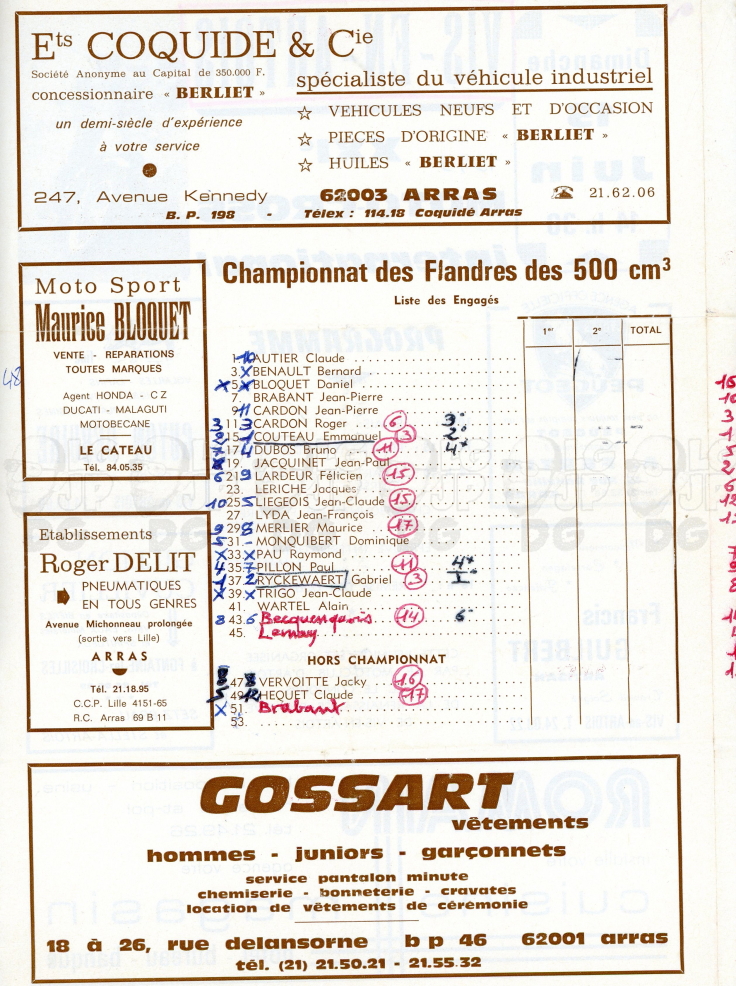 Ets COQUIDE & Cie
Société Anonyme au Capital de 350.000 F.
concessionnaire « BERLIET »
un demi-siècle d'expérience
à votre service
spécialiste du véhicule industriel
☆ VEHICULES NEUFS ET D'OCCASION
☆ PIECES D'ORIGINE « BERLIET »
☆ HUILES « BERLIET »
247, Avenue Kennedy 62003 ARRAS ☎ 21.62.06
B. P. 198 - Télex : 114.18 Coquidé Arras
Moto Sport
Maurice BLOQUET
VENTE - REPARATIONS
TOUTES MARQUES
Agent HONDA - C Z
DUCATI - MALAGUTI
MOTOBECANE
LE CATEAU
Tél. 84.05.35
Etablissements
Roger DELIT
PNEUMATIQUES
EN TOUS GENRES
Avenue Michonneau prolongée
(sortie vers Lille)
ARRAS
Tél. 21.18.95
C.C.P. Lille 4151-65
R.C. Arras 69 B 11
Championnat des Flandres des 500 cm3
Liste des Engagés
1er 2e TOTAL
1. 10 AUTIER Claude
3. X BENAULT Bernard
X 5. X BLOQUET Daniel
7. BRABANT Jean-Pierre
9. 11 CARDON Jean-Pierre
3 11. 3 CARDON Roger 6 3
2 15. 1 COUTEAU Emmanuel 3 2
17. 4 DUBOS Bruno 11 4
19. JACQUINET Jean-Paul
6 21. 9 LARDEUR Félicien 15
23. LERICHE Jacques
10 25. 5 LIEGEOIS Jean-Claude 15
27. LYDA Jean-François
9 29. 8 MERLIER Maurice 17
5 31. - MONQUIBERT Dominique
X 33. X PAU Raymond
4 35. 7 PILLON Paul 11 4
1 37. 2 RYCKEWAERT Gabriel 3 1
X 39. X TRIGO Jean-Claude
41. WARTEL Alain
8 43. 6 Becquenquois 14 6
45. Lernay
HORS CHAMPIONNAT
47. 8 VERVOITTE Jacky 16
49. 12 HEQUET Claude 17
X 51. Brabant
53.
48
GOSSART
vêtements
hommes - juniors - garçonnets
service pantalon minute
chemiserie - bonneterie - cravates
location de vêtements de cérémonie
18 à 26, rue delansorne b p 46 62001 arras
tél. (21) 21.50.21 - 21.55.32